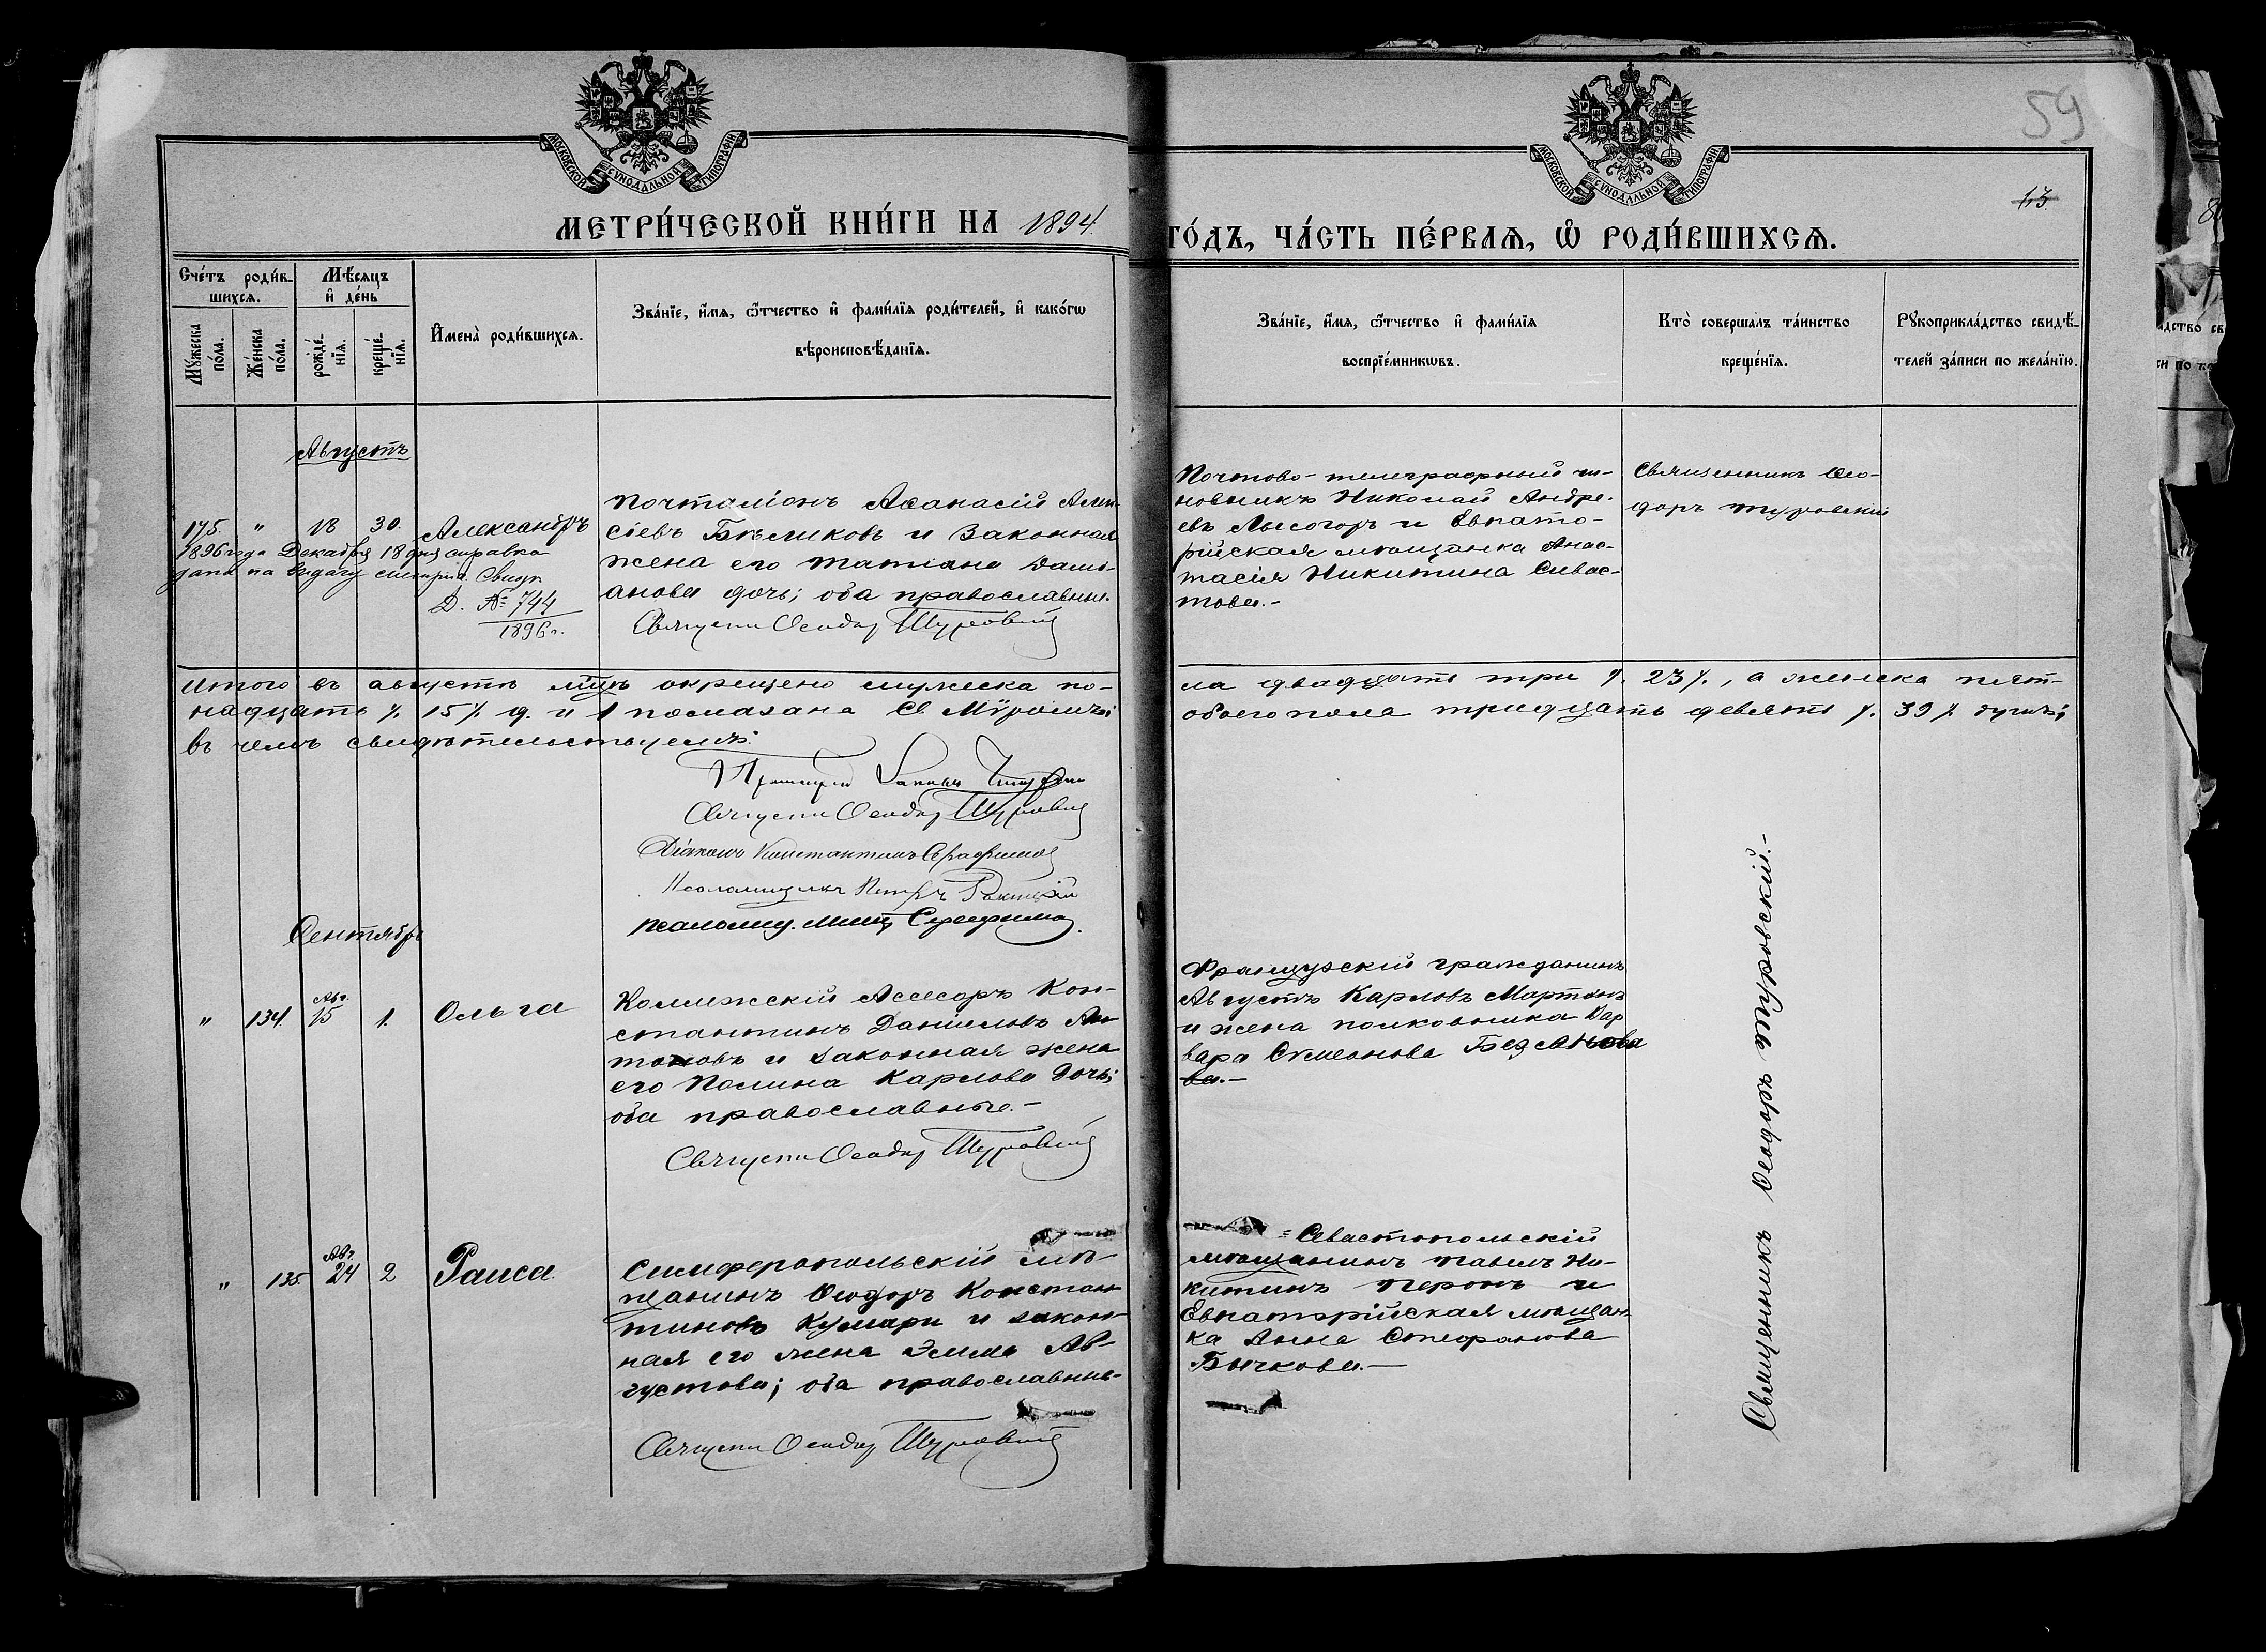 59
13.
МОСКОВСКОЙ СѴНОДАЛЬНОЙ ТИПОГРАФІИ
МОСКОВСКОЙ СѴНОДАЛЬНОЙ ТИПОГРАФІИ
МЕТРИ́ЧЕСКОЙ КНИ́ГИ НА 1894
ГО́ДЪ, ЧА́СТЬ ПЕ́РВАѦ, Ѽ РОДИ́ВШИХСѦ.
Сче́тъ роди́в-
шихсѧ.
Мѣ́сѧцъ
и҆ де́нь
Мꙋ́жеска
по́ла.
Же́нска
по́ла.
рожде́-
нїѧ.
креще́-
нїѧ.
И҆мена̀ роди́вшихсѧ.
Зва́нїе, и҆́мѧ, ѻ҆́тчество и҆ фами́лїѧ роди́телей, и҆ како́гѡ
вѣроисповѣ́данїѧ.
Зва́нїе, и҆́мѧ, ѻ҆́тчество и҆ фами́лїѧ
воспрїе́мникѡвъ.
Кто̀ соверша́лъ та́инство
креще́нїѧ.
Рꙋкоприкла́дство свидѣ́-
телей за́писи по жела́нїю.
Августъ
175. " 18 30. Александръ
1896 года Декабря 18 дня справка
дана на выдачу
Д. № 744
1896 г.
Почталіонъ Аѳанасій Алек-
сѣевъ Бѣликовъ и законная
жена его Татіана Дамі-
анова дочь; оба православные.
Священникъ Ѳеодоръ Туровскій
Почтово-телеграфный чи-
новникъ Николай Андре-
евъ Лысогоръ и Евпато-
рійская мѣщанка Анас-
тасія Никитина Сивас-
това.-
Священникъ Ѳео-
доръ Туровскій
Итого въ августѣ м-цѣ окрещено мужеска по-
ла двадцать три /. 23 /., а женска пят-
надцать /. 15 /. д. и 1 помазана Св. Мѵромъ;
обоего пола тридцать девять /. 39 /. душъ;
въ чемъ свидѣтельствуемъ:
Протоіерей
Священникъ Ѳеодоръ Туровскій
Діаконъ Константинъ Серафимовъ
Псаломщикъ Петръ
Псаломщ. Серафимовъ.
Сентябрь
" 134. Авг. 15 1. Ольга
Коллежскій Асесоръ Кон-
стантинъ Даніиловъ Ан-
тоновъ и законная жена
его Полина Карлова дочь;
оба православные.-
Священникъ Ѳеодоръ Туровскій
Французскій гражданинъ
Августъ Карловъ Мартенъ
и жена полковника Вар
вара Симеонова
ва.-
" 135. Авг. 24 2 Раиса.
Симферопольскій мѣ-
щанинъ Ѳеодоръ Констан
тиновъ Кумари и закон-
ная его жена Эмма Ав-
густова; оба православные-
Священникъ Ѳеодоръ Туровскій
= Севастопольскій
мѣщанинъ Павелъ Ни-
китинъ Перонъ и
Евпаторійская мѣщан-
ка Анна Стефанова
Бычкова.-
Священникъ Ѳеодоръ Туровскій.-